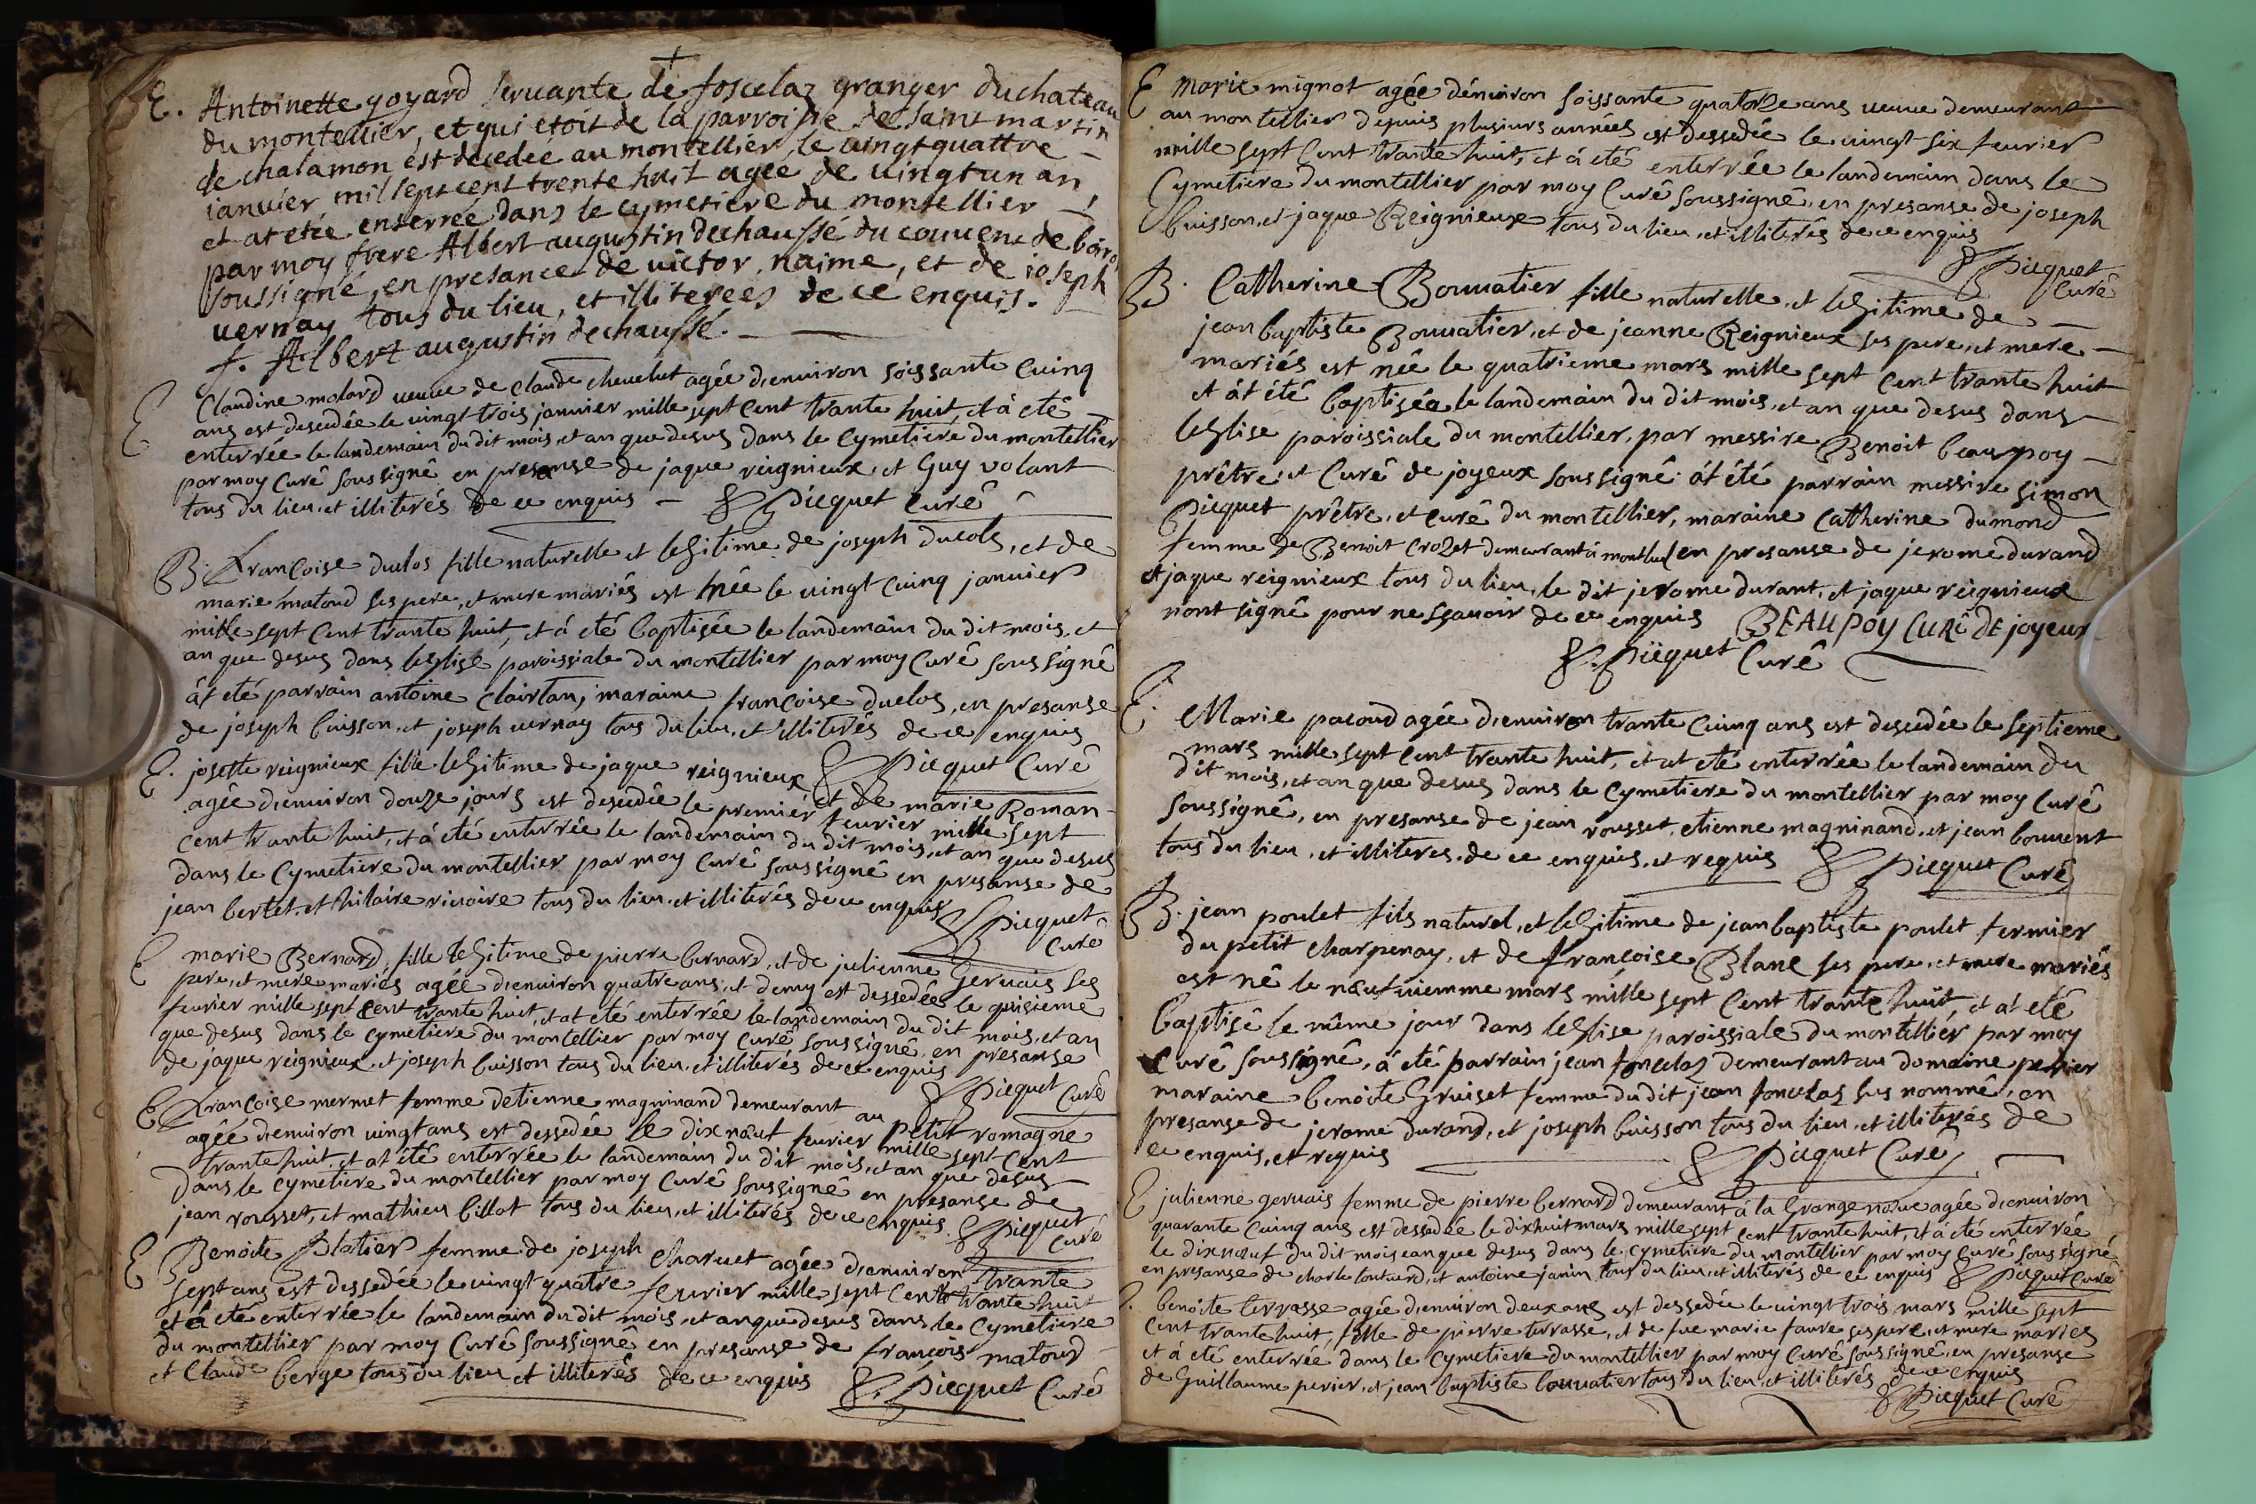 +
E. Antoinette goyard servante de foscelaz granger du chateau
du montellier, et qui etoit de la parroisse de saint martin
de chalamon est decedée au montellier, le vingt quattre –
janvier mil sept cent trente huit agée de vingt un an,
et at etée enterrée dans le cymetiere du montellier –
par moy frere Albert augustin dechaussé du couvent de
soussigné, en presance de victor naime, et de joseph
vernay tous du lieu, et illiterees de ce enquis.
f. Albert augustin dechaussé.
E Claudine molard veuve de Claude chevelut agée d'environ soissante cuinq
ans est desedée le vingt trois janvier mille sept cent trante huit, et à eté
enterrée le landemain du dit mois, et an que desus dans le Cymetiere du montellier
par moy Curê soussignê en presanse de jaque reignieux, et Guy volant
tous du lieu, et illiterés de ce enquis – Picquet Curê
B. Françoise duclos fille naturelle et leGitime de joseph ducols, et de
marie matoud ses pere, et mere mariés est née le vingt cuinq janvier
mille sept cent trante huit, et á eté baptisée le landemain du dit mois, et
an que desus dans leGlise paroissiale du montellier par moy Curê soussignê
ât eté parrain antoine Clairtan, maraine françoise duclos, en presanse
de joseph buisson, et joseph vernay tous du lieu, et illiterés de ce enquis
Picquet Curê
E. josette reignieux fille leGitime de jaque reignieux et de marie Roman –
agée d'environ douze jours est desedée le premier fevrier mille sept
cent trante huit, et á eté enterrée le landemain du dit mois, et an que desus
dans le Cymetiere du montellier par moy Curê soussignê en presanse de
jean bertet, et hilaire rivoire tous du lieu, et illiterés de ce enquis
Picquet
Curê
E marie Bernard, fille leGitime de pierre bernard, et de julienne Gervais ses
pere, et mere mariés agée d'environ quatre ans, et demy est dessedée le quisieme
fevrier mille sept cent trante huit, et at eté enterrée le landemain du dit mois, et an
que desus dans le cymetiere du montellier par moy curê soussignê en presanse
de jaque reignieux, et joseph buisson tous du lieu, et illiterés de ce enquis
Picquet Curê
E Françoise mermet femme detienne magninand demeurant au petit romagne
agée d'environ vingt ans est dessedée le dix nœuf fevrier mille sept cent
trante huit, et at êté enterrée le landemain du dit mois, et an que desus
dans le cymetiere du montellier par moy Curê soussignê en presanse de
jean rousset, et mathieu billot tous du lieu, et illiterés de ce enquis. Picquet
Curê
E Benoite Platier femme de joseph Charvet agée d'environ trante
sept ans est dessedée le vingt quatre fevrier mille sept cent trante huit
et à eté enterrée le landemain du dit mois, et an que desus dans le Cymetiere
du montellier par moy Curê soussignê en presanse de françois matoud
et Claude berge tous du lieu et illiterés de ce enquis Picquet Curê
E Marie mignot agée d'environ soissante quatorze ans veuve demeurant
au montellier depuis plusiurs années est dessedée le vingt six fevrier
mille sept cent trante huit, et á eté enterrée le landemain dans le
Cymetiere du montellier par moy Curê soussignê, en presanse de joseph
buisson, et jaque Reignieux tous du lieu, et illiterés de ce enquis
Picquet
Curê
B. Catherine Bouvatier fille naturelle, et leGitime de –
jean baptiste Bouvatier, et de jeanne Reignieux ses pere, et mere –
mariés est née le quatrieme mars mille sept cent trante huit
et át été baptisée le landemain du dit mois, et an que desus dans
leGlise paroissiale du montellier, par messire Benoit beaupoy –
prêtre, et Curê de joyeux soussignê. át été parrain messire simon
Picquet prêtre, et curê du montellier, maraine Catherine dumond
femme de Benoit Crozet demeurant à montluel en presanse de jerome durand
et jaque reignieux tous du lieu, le dit jerome durant, et jaque reignieux
nont signê pour ne sçavoir de ce enquis BEAUPOY CURé DE joyeux
Picquet Curê
E. Marie pacoud agée d'environ trante cuinq ans est desedée le septieme
mars mille sept cent trante huit, et at eté enterrée le landemain du
dit mois, et an que desus dans le Cymetiere du montellier par moy Curê
soussignê, en presanse de jean rousset, etienne magninand, et jean bouvent
tous du lieu, et illiteres de ce enquis, et requis Picquet Curê
B. jean poulet fils naturel, et leGitime de jean baptiste poulet fermier
du petit charpenay, et de françoise Blanc ses pere, et mere mariés
est nê le nœufviemme mars mille sept cent trante huit, et at eté
baptisê le même jour dans leGlise paroissiale du montellier par moy
Curê soussignê, á eté parrain jean foncelaz demeurant au domaine perrier
maraine benoite Gruiset femme du dit jean foncelaz sus nommê, en
presanse de jerome durand, et joseph buisson tous du lieu, et illiterés de
ce enquis, et requis Picquet Curê
E julienne gervais femme de pierre bernard demeurant à la Grange neuve agée d'environ
quarante cuinq ans est dessedée le dixhuit mars mille sept cent trante huit, et á eté enterrée
le dixnœuf du dit mois ean que desus dans le cymetiere du montellier par moy curê soussignê
en presanse de charle, et antoine janin tous du lieu, et illiterés de ce enquis Picquet Curê
benoite terrasse agée d'environ deux ans est dessedée le vingt trois mars mille sept
cent trante huit, fille de pierre terrasse, et de fue marie faure ses pere, et mere maries
et á eté enterrée dans le Cymetiere du montellier par moy Curê soussignê, en presanse
de Guillaume perier, et jean baptiste bouvatier tous du lieu, et illiterés de ce enquis
Picquet Curê